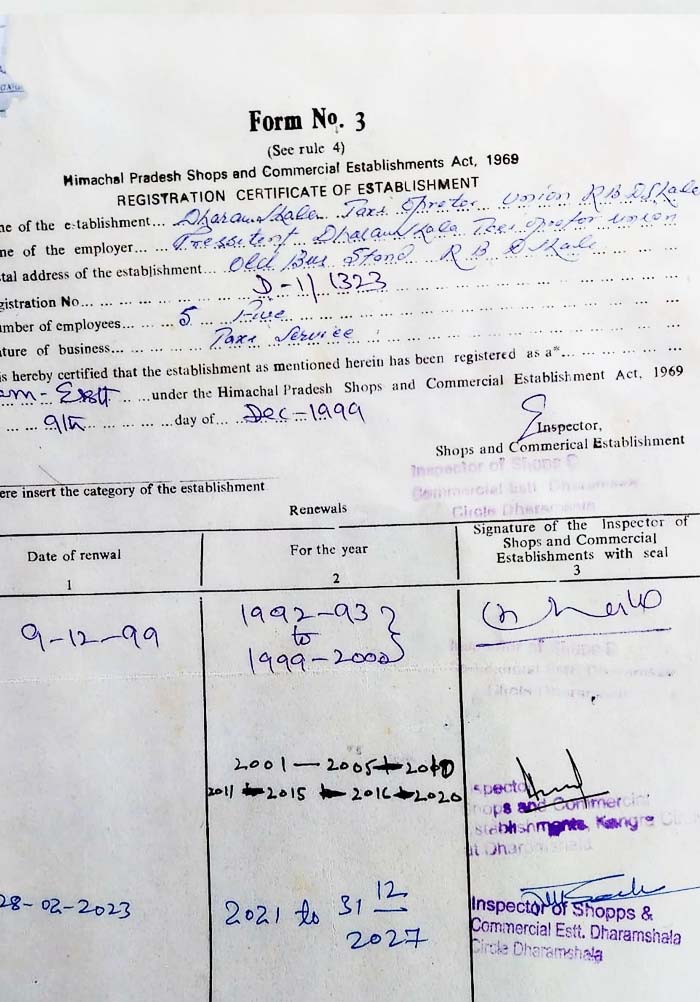 Form No. 3
(See rule 4)
Himachal Pradesh Shops and Commercial Establishments Act, 1969
REGISTRATION CERTIFICATE OF ESTABLISHMENT
ne of the establishment... Dharamshala Taxi Opreter Union R B DShala
me of the employer... Pressetent Dharamshala Taxi opretor union
stal address of the establishment... Old Bus Stand R B DShala
gistration No... D-1/1323
umber of employees... 5 Five
ature of business... Taxi Service
is hereby certified that the establishment as mentioned herein has been registered as a*...
...under the Himachal Pradesh Shops and Commercial Establishment Act, 1969
9th ...day of... Dec-1999
Inspector,
Shops and Commerical Establishment
Inspector of Shops
Commercial Estt. Dharamsala
Circle
ere insert the category of the establishment
Renewals
Date of renwal
For the year
Signature of the Inspector of Shops and Commercial Establishments with seal
1
2
3
9-12-99
1992-93
to
1999-2000
2001 — 2005 2010
2011 2015 2016 2020
specto
ops and Commercial
stablishments, Kangra
t Dharamshala
28-02-2023
2021 to 31 12
2027
Inspector of Shopps &
Commercial Estt. Dharamshala
Circle Dharamshala